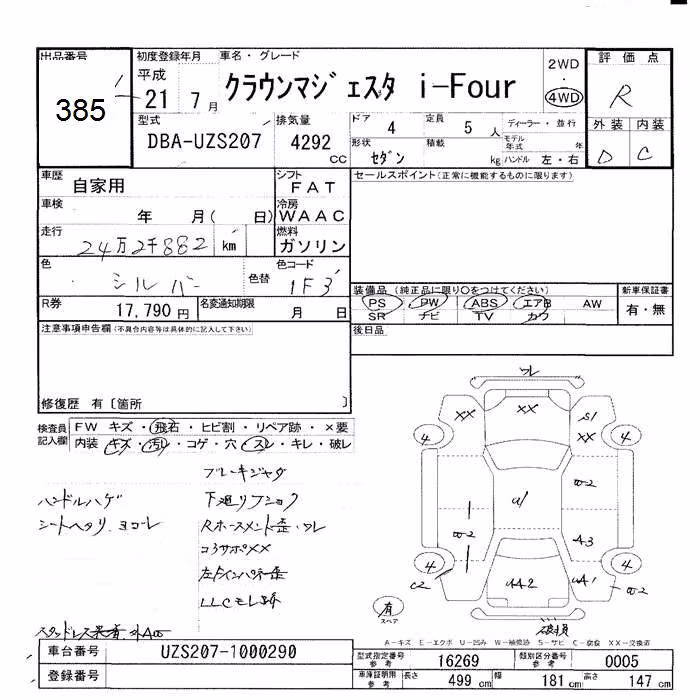 出品番号
385
初度登録年月
平成
21 7月
車名・グレード
クラウンマジェスタ i-Four
2WD
・
4WD
評価点
R
外装 内装
D C
型式
DBA-UZS207
排気量
4292 cc
ドア 4
定員 5 人
ディーラー・並行
モデル年式 年
形状 セダン
積載 kg
ハンドル 左・右
車歴 自家用
シフト FAT
車検 年 月( 日)
冷房 WAAC
走行 24万2千882 km
燃料 ガソリン
色 シルバー
色替
色コード 1F3
R券 17,790円
名変通知期限 月 日
セールスポイント(正常に機能するものに限ります)
装備品(純正品に限り○をつけてください)
PS PW ABS エアB AW
SR ナビ TV カワ
新車保証書
有・無
後日品
注意事項申告欄(不具合内容等は具体的に記入して下さい)
修復歴 有〔箇所 〕
検査員記入欄
FW キズ・飛石・ヒビ割・リペア跡・×要
内装 キズ・汚レ・コゲ・穴・スレ・キレ・破レ
ブレーキジャダ
ハンドルハゲ
下廻りフショク
シートヘタリ、ヨゴレ
コアサポXX
スタッドレス
ワレ
XX XX S1
XX
4 4
U1
A3
4 4
C2 UA2 UA1
有
スペア
破損
A-キズ E-エクボ U-凹み W-補修跡 S-サビ C-腐食 XX-交換済
車台番号 UZS207-1000290
登録番号
型式指定番号 参考 16269
類別区分番号 参考 0005
車庫証明用 参考 長さ 499 cm 幅 181 cm 高さ 147 cm